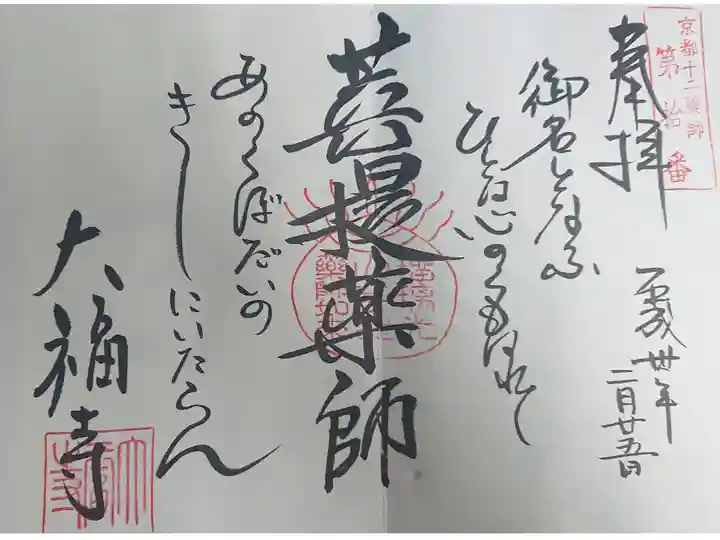 京都十二薬師
第拾番
奉拝
平成卅年
二月廿五日
御名となふ
ひとは心のくもはれて
菩提薬師
あのくぼだいの
きしにいたらん
大福寺